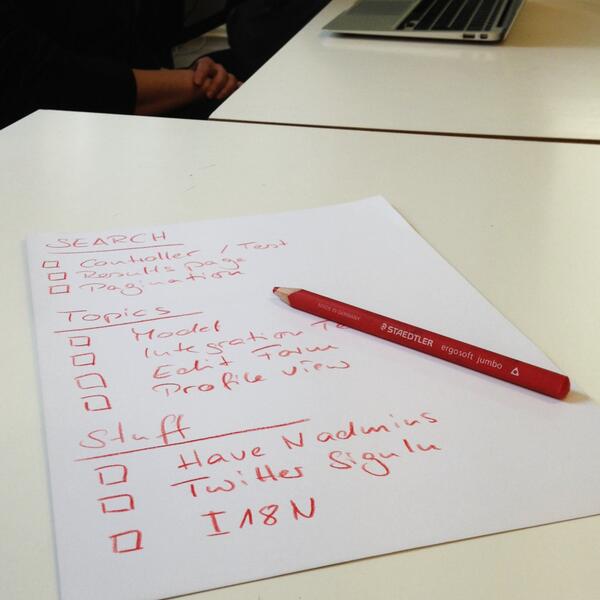 SEARCH
Controller / Test
Results page
Pagination
Topics
Model
Integration Te
Edit Form
Profile view
Stuff
Have N admins
Twitter SignIn
I18N
MADE IN GERMANY
STAEDTLER
ergosoft jumbo